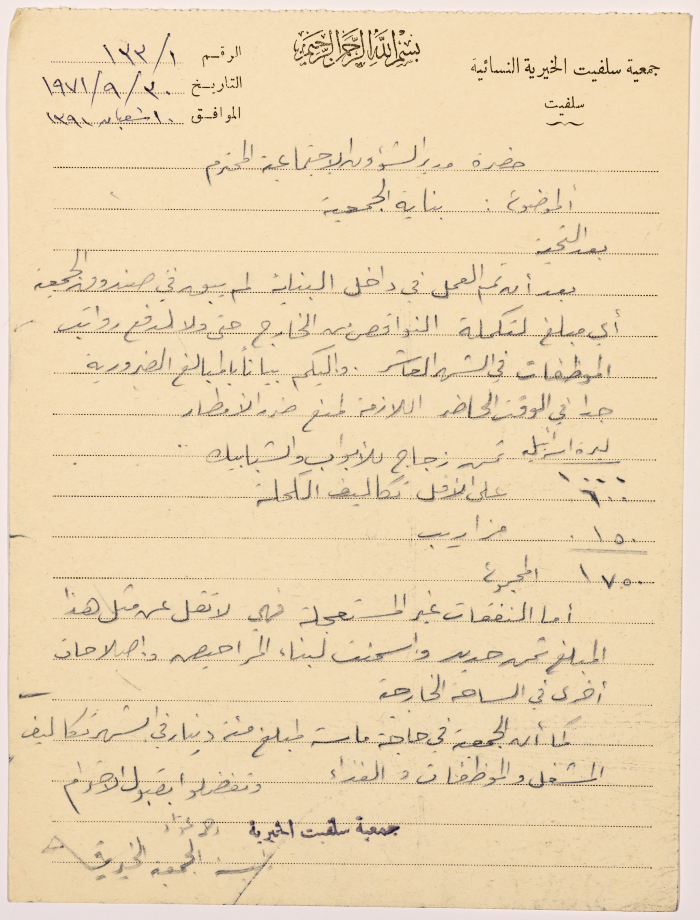 بسم الله الرحمن الرحيم
جمعية سلفيت الخيرية النسائية
سلفيت
الرقم ١٣٣/١
التاريخ ٣٠/٩/١٩٧١
الموافق ١٠ شعبان ١٣٩١
حضرة مدير الشؤون الاجتماعية المحترم
الموضوع : بناية الجمعية
بعد التحية
بعد أن تم العمل في داخل البناية لم يبق في صندوق الجمعية
أي مبلغ لتكملة النواقص من الخارج حتى ولا لدفع رواتب
الموظفات في الشهر العاشر . واليكم بياناً بالمبالغ الضرورية
جدا في الوقت الحاضر اللازمة لمنع ضرر الأمطار
ليرة اسرائيلية ثمن زجاج للأبواب والشبابيك
١٠٠٠
٦٠٠ على الأقل تكاليف الكحلة
١٥٠ مزاريب
١٧٥٠ المجموع
أما النفقات غير المستعجلة فهي لا تقل عن مثل هذا
المبلغ ثمن حديد واسمنت لبناء المراحيض واصلاحات
أخرى في الساحة الخارجة
كما أن الجمعية في حاجة ماسة لمبلغ مئة دينار في الشهر تكاليف
المشغل والموظفات والغذاء وتفضلوا بقبول الاحترام
جمعية سلفيت الخيرية
الجمعية الخيرية